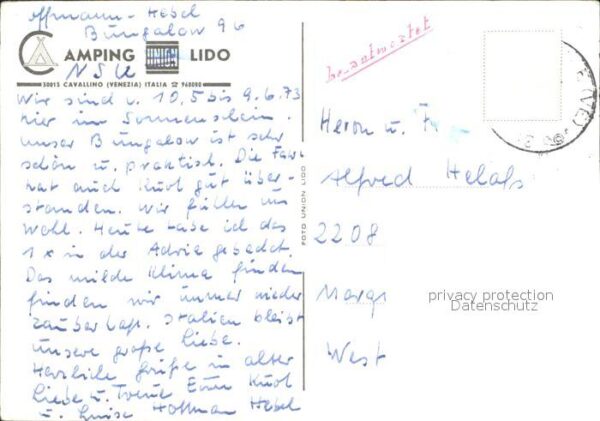 Hoffmann-Hebel
Bungalow 96
CAMPING UNION LIDO
NSU
30013 CAVALLINO (VENEZIA) ITALIA ☎ 968080
Wir sind v. 10.5 bis 9.6.73
hier im Sonnenschein.
unser Bungalow ist sehr
schön u. praktisch. Die Fahrt
hat auch Kurt gut über-
standen. Wir fühlen uns
wohl. Heute habe ich das
1x in der Adria gebadet.
Das milde Klima finden
finden wir immer wieder
zauberhaft. Italien bleibt
unsere große Liebe.
Herzliche Grüße in alter
Liebe u. Treue Euer Kurt
u. Luise Hoffmann Hebel
FOTO UNION LIDO
beantwortet
(VE)
Herrn u. Frau
Alfred Helass
2208
privacy protection
Datenschutz
West